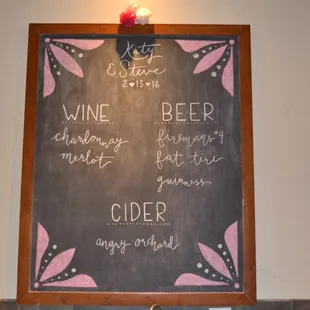 Katy
& Steve
2♥13♥16
WINE
chardonnay
merlot
BEER
firemans #4
fat tire
guinness
CIDER
angry orchard